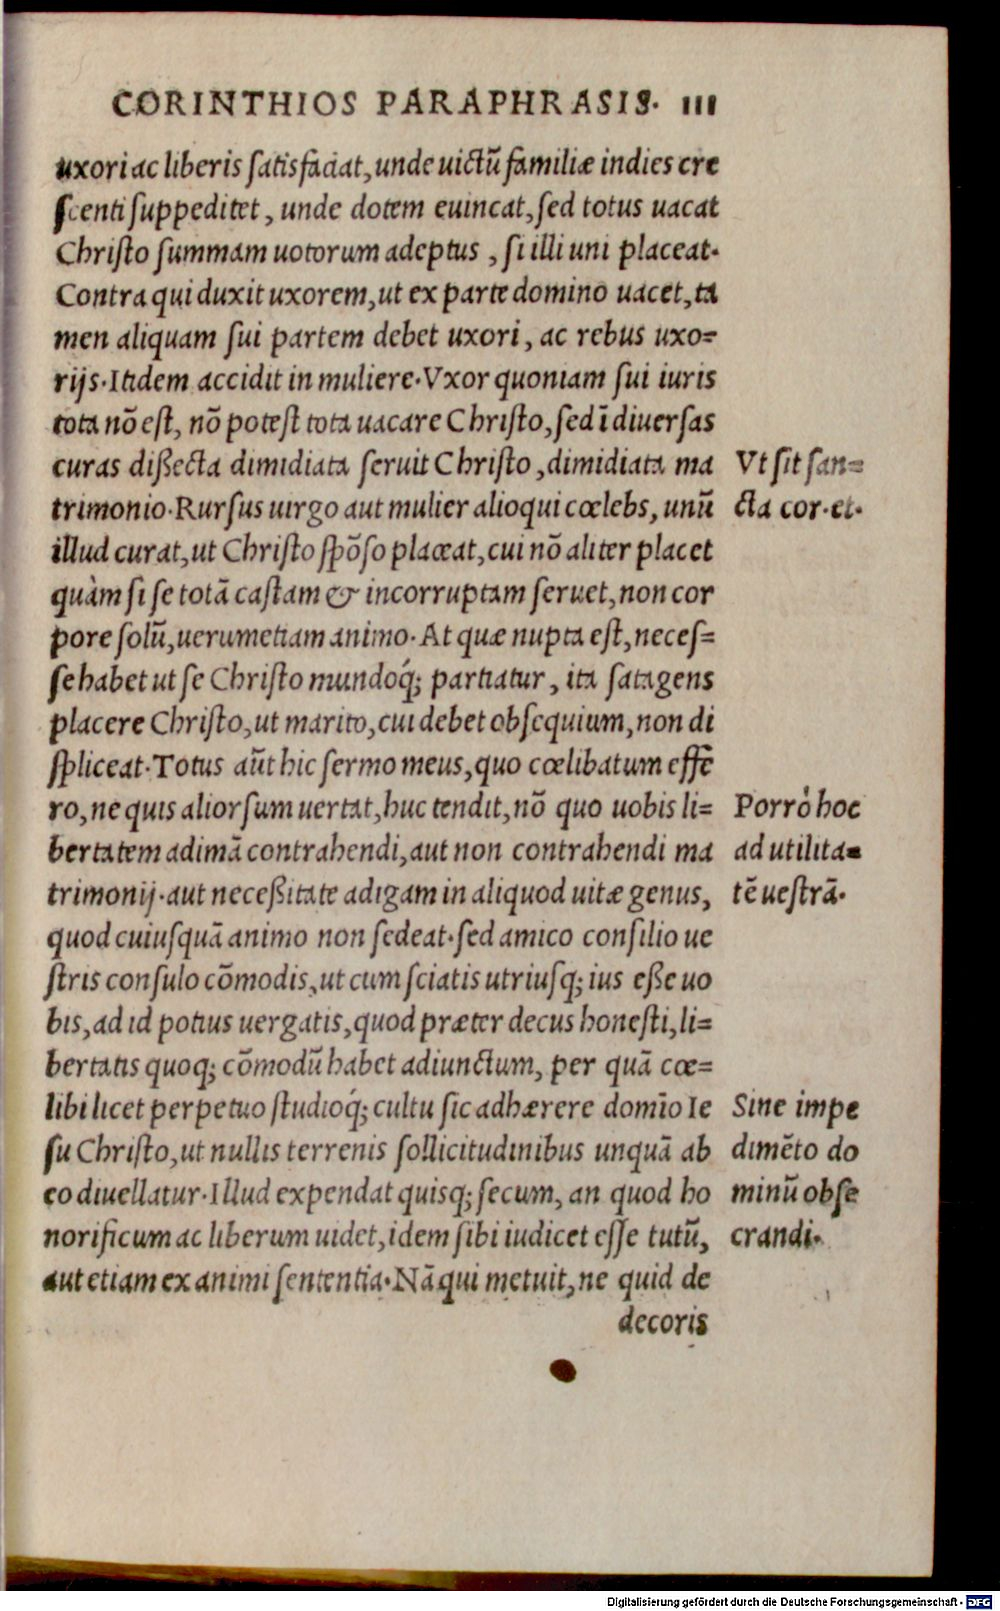 CORINTHIOS PARAPHRASIS. III
uxori ac liberis ſatisfaciat, unde uictū familiæ indies cre
ſcenti ſuppeditet, unde dotem euincat, ſed totus uacat
Chriſto ſummam uotorum adeptus, ſi illi uni placeat.
Contra qui duxit uxorem, ut ex parte domino uacet, ta
men aliquam ſui partem debet uxori, ac rebus uxo=
rijs. Itidem accidit in muliere. Vxor quoniam ſui iuris
tota nō eſt, nō poteſt tota uacare Chriſto, ſed ī diuerſas
curas dißecta dimidiata ſeruit Chriſto, dimidiata ma
trimonio. Rurſus uirgo aut mulier alioqui cœlebs, unū
illud curat, ut Chriſto ſpōſo placeat, cui nō aliter placet
quàm ſi ſe totā caſtam & incorruptam ſeruet, non cor
pore ſolū, uerumetiam animo. At quæ nupta eſt, neceſ=
ſe habet ut ſe Chriſto mundoq́; partiatur, ita ſatagens
placere Chriſto, ut marito, cui debet obſequium, non di
ſpliceat. Totus aūt hic ſermo meus, quo cœlibatum effē
ro, ne quis aliorſum uertat, huc tendit, nō quo uobis li=
bertatem adimā contrahendi, aut non contrahendi ma
trimonij. aut neceßitate adigam in aliquod uitæ genus,
quod cuiuſquā animo non ſedeat. ſed amico conſilio ue
ſtris conſulo cōmodis, ut cum ſciatis utriuſq; ius eße uo
bis, ad id potius uergatis, quod præter decus honeſti, li=
bertatis quoq; cōmodū habet adiunctum, per quā cœ=
libi licet perpetuo ſtudioq́; cultu ſic adhærere domīo Ie
ſu Chriſto, ut nullis terrenis ſollicitudinibus unquā ab
eo diuellatur. Illud expendat quisq; ſecum, an quod ho
norificum ac liberum uidet, idem ſibi iudicet eſſe tutū,
aut etiam ex animi ſententia. Nā qui metuit, ne quid de
decoris
Vt ſit ſan=
cta cor. et.
Porrò hoc
ad utilita=
tē ueſtrā.
Sine impe
dimēto do
minū obſe
crandi.
Digitalisierung gefördert durch die Deutsche Forschungsgemeinschaft - DFG